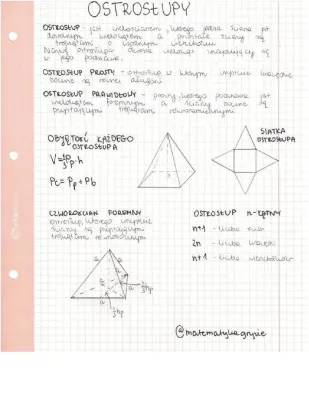 OSTROSŁUPY
OSTROSŁUP - jest wielościanem, którego jedna ściana jest
dowolnym wielokątem a pozostałe ściany są
trójkątami o wspólnym wierzchołku.
ostrosłupa
w jego podstawie.
OSTROSŁUP PROSTY - ostrosłup, w którym wszystkie krawędzie
boczne są równej długości
OSTROSŁUP PRAWIDŁOWY - prosty, którego podstawą jest
wielokąt foremny a ściany boczne są
przystającymi trójkątami równoramiennymi.
OBJĘTOŚĆ KAŻDEGO
OSTROSŁUPA
V = Pp · h
Pc = Pp + Pb
SIATKA
OSTROSŁUPA
CZWOROŚCIAN FOREMNY
ostrosłup, którego wszystkie
ściany są przystającymi
trójkątami równobocznymi
OSTROSŁUP n-KĄTNY
n+1 - liczba ścian
2n - liczba krawędzi
n+1 - liczba wierzchołków
a
a
hp
hp
@matematykagryzie